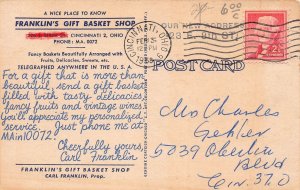 A NICE PLACE TO KNOW
FRANKLIN'S GIFT BASKET SHOP
CINCINNATI 2, OHIO
PHONE: MA. 0072
Fancy Baskets Beautifully Arranged with
Fruits, Delicacies, Sweets, etc.
TELEGRAPHED ANYWHERE IN THE U. S. A.
For a gift that is more than
beautiful, send a gift basket
filled with tasty delicacies,
fancy fruits and vintage wines.
You'll appreciate my personalized
service. Just phone me at
MAin10072!
Cheerfully yours,
Carl Franklin
FRANKLIN'S GIFT BASKET SHOP
CARL FRANKLIN, Prop.
6 00
CINCINNATI, OHIO
FEB
12 PM
OUR NEW ADDRESS
POST CARD
Mrs Charles
Gehler
5039 Oberlin
Blvd
Cin. 37 O